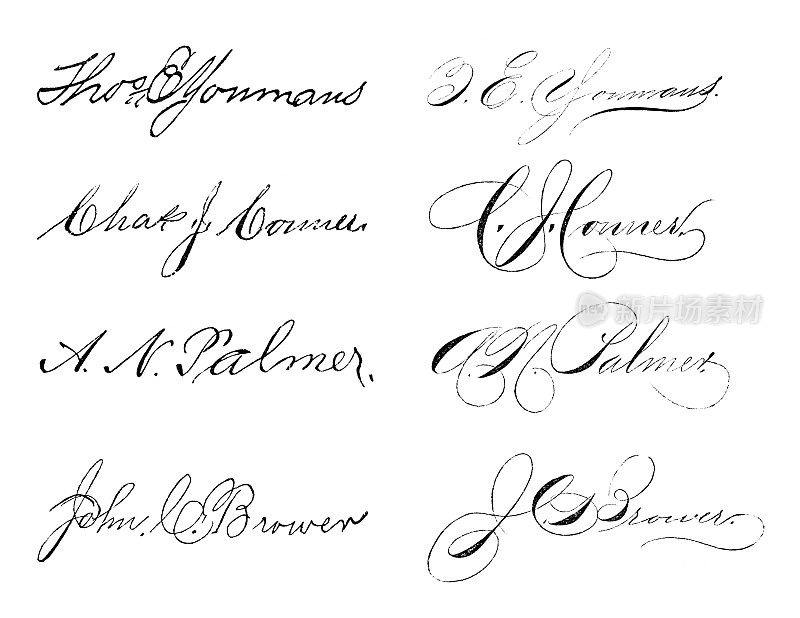 Thos E Youmans
T. E. Youmans.
Chas. J. Conner.
C. J. Conner.
A. N. Palmer.
A. N. Palmer.
new 新片场素材
John. C. Brower
J C Brower.